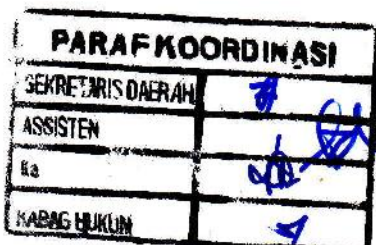 PARAF KOORDINASI
SEKRETARIS DAERAH
ASSISTEN
Ka
KABAG HUKUM